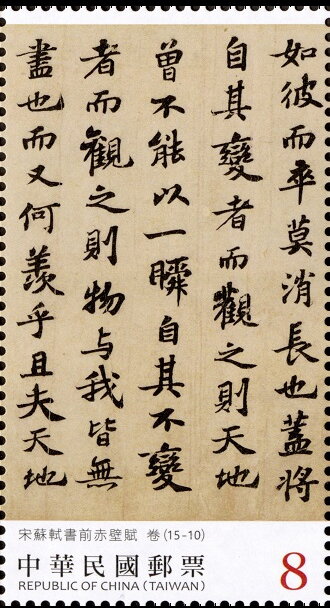 如彼而卒莫消長也蓋將
自其變者而觀之則天地
曾不能以一瞬自其不變
者而觀之則物与我皆無
盡也而又何羨乎且夫天地
宋蘇軾書前赤壁賦 卷(15-10)
中華民國郵票
REPUBLIC OF CHINA (TAIWAN)
8